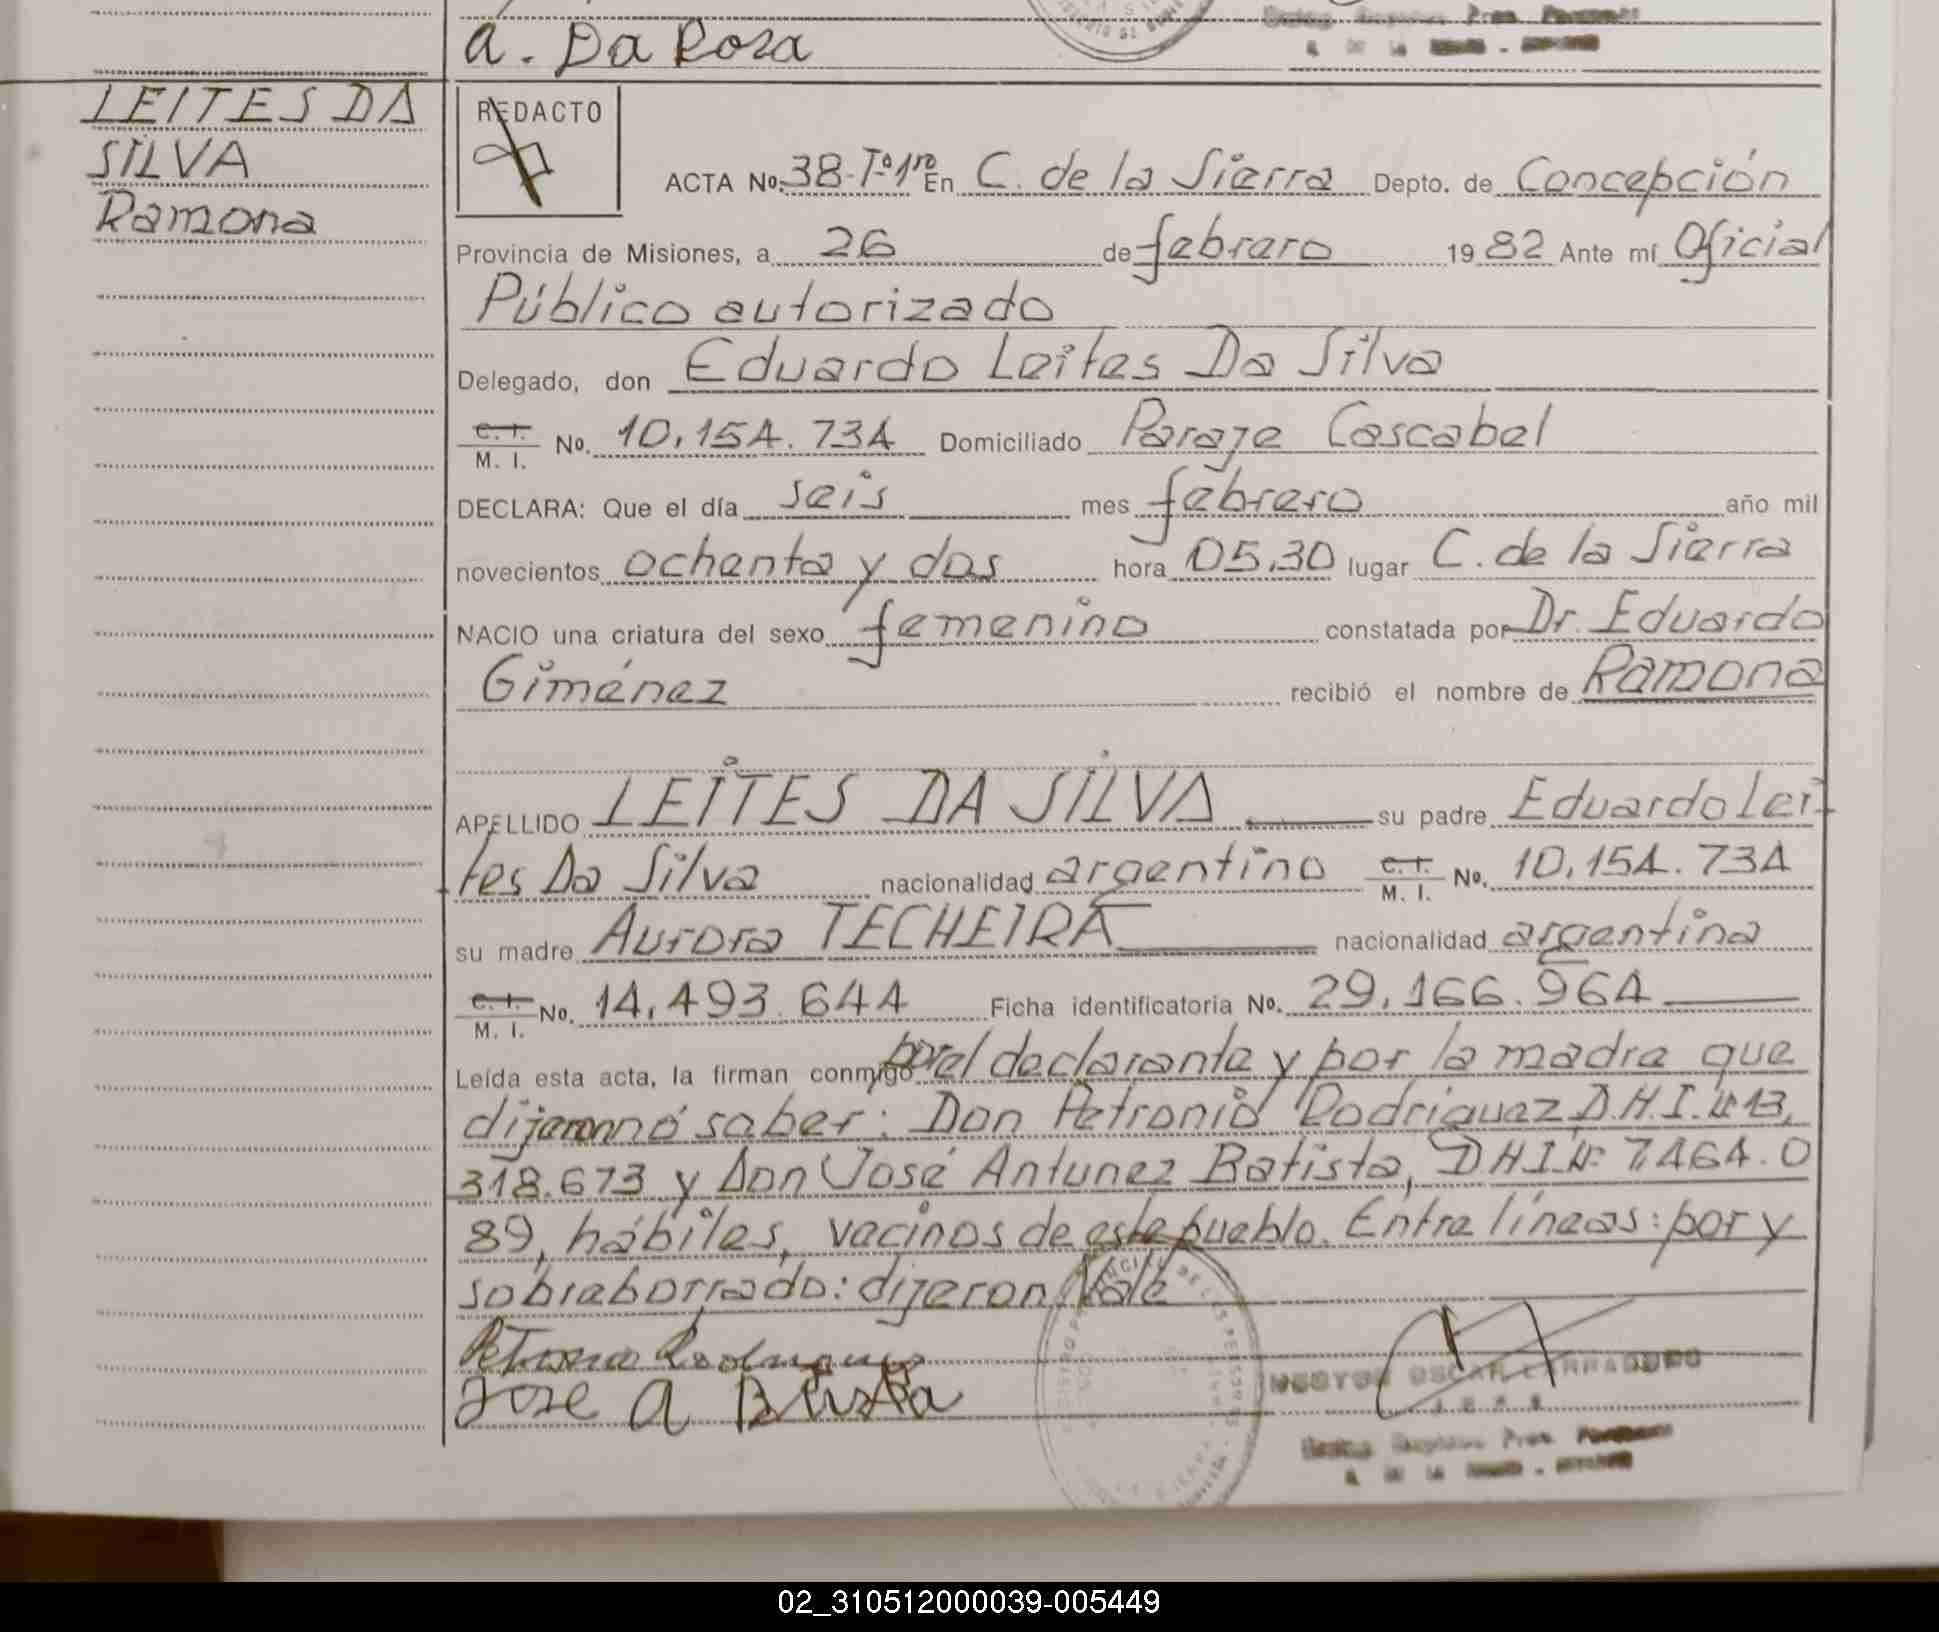 a. Da Rosa
LEITES DA
SILVA
Ramona
REDACTO
ACTA No. 38-Tº1ro En C. de la Sierra Depto. de Concepción
Provincia de Misiones, a 26 de febrero 1982 Ante mí Oficial
Público autorizado
Delegado, don Eduardo Leites Da Silva
C. I. M. I. No. 10.154.734 Domiciliado Paraje Cascabel
DECLARA: Que el día seis mes febrero año mil
novecientos ochenta y dos hora 05,30 lugar C. de la Sierra
NACIO una criatura del sexo femenino constatada por Dr. Eduardo
Giménez recibió el nombre de Ramona
APELLIDO LEITES DA SILVA su padre Eduardo Lei-
tes Da Silva nacionalidad argentino C. I. M. I. No. 10.154.734
su madre Aurora TECHEIRA nacionalidad argentina
C. I. M. I. No. 14.493.644 Ficha identificatoria No. 29.166.964
Leída esta acta, la firman conmigo por el declarante y por la madre que
dijeron nó saber: Don Petronio Rodriguez D.N.I.Nº 13.
318.673 y Don José Antunez Batista, D.N.I.Nº 7.464.0
89, hábiles, vecinos de este pueblo. Entre líneas: por y
sobreborrado: dijeron Vale
Petronio Rodriguez
Jose A Batista
02_310512000039-005449